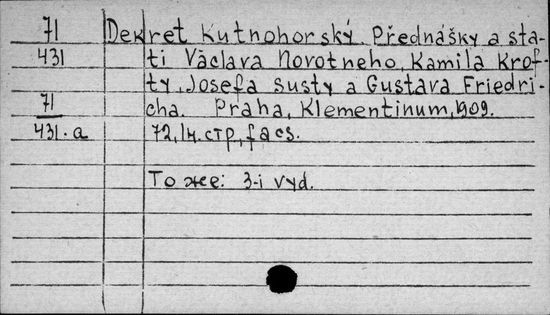 71 Dekret Kutnohorský. Přednášky a sta-
431 ti Václava Novotneho, Kamila Krof-
ty, Josefa Susty a Gustava Friedri-
71 cha. Praha, Klementinum, 1909.
431.a 72, 1н. стр., facs.
То же: 3-i vyd.